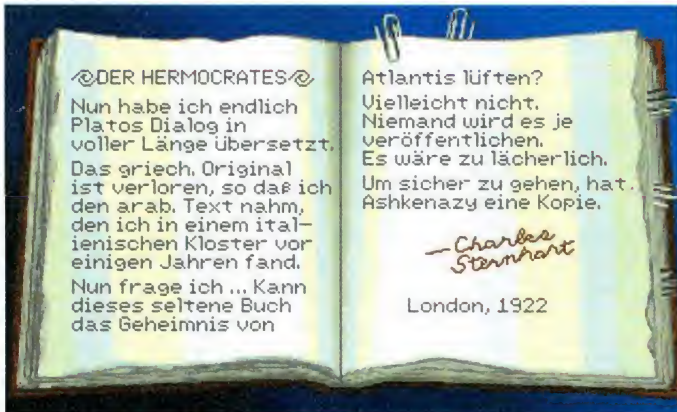 DER HERMOCRATES
Nun habe ich endlich
Platos Dialog in
voller Länge übersetzt.
Das griech. Original
ist verloren, so daß ich
den arab. Text nahm,
den ich in einem ital-
ienischen Kloster vor
einigen Jahren fand.
Nun frage ich ... Kann
dieses seltene Buch
das Geheimnis von
Atlantis lüften?
Vielleicht nicht.
Niemand wird es je
veröffentlichen.
Es wäre zu lächerlich.
Um sicher zu gehen, hat
Ashkenazy eine Kopie.
—Charles
Sternhart
London, 1922